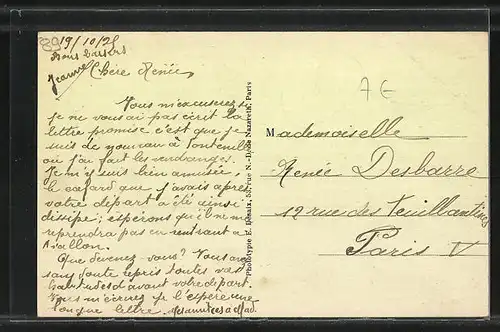 19/10/25
Bons baisers
Jeanne
Chère Renée,
Vous m'excuserez si
je ne vous ai pas écrit la
lettre promise c'est que je
suis de nouveau à
où j'ai fait les vendanges.
Je m'y suis bien amusée,
le cafard que j'avais après
votre départ a été ainsi
dissipé; espérons qu'il ne me
reprendra pas en rentrant à
Avallon.
Que devenez-vous? Vous avez
sans doute repris toutes vos
habitudes d'avant votre départ.
Vous m'écrirez je l'espère une
longue lettre. Mes amitiés à
Phototypie E. Desaix, 53, rue N.-D. de Nazareth, Paris
7E
Mademoiselle
Renée Desbarre
12 rue des Feuillantines
Paris V